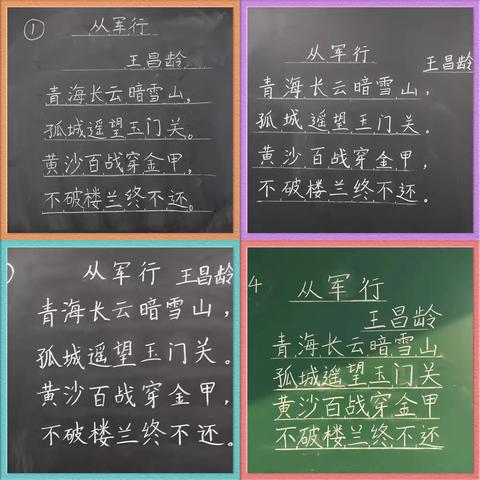 ①
从军行
王昌龄
青海长云暗雪山，
孤城遥望玉门关。
黄沙百战穿金甲，
不破楼兰终不还。
从军行
王昌龄
青海长云暗雪山，
孤城遥望玉门关。
黄沙百战穿金甲，
不破楼兰终不还。
从军行 王昌龄
青海长云暗雪山，
孤城遥望玉门关。
黄沙百战穿金甲，
不破楼兰终不还。
4 从军行
王昌龄
青海长云暗雪山
孤城遥望玉门关
黄沙百战穿金甲
不破楼兰终不还